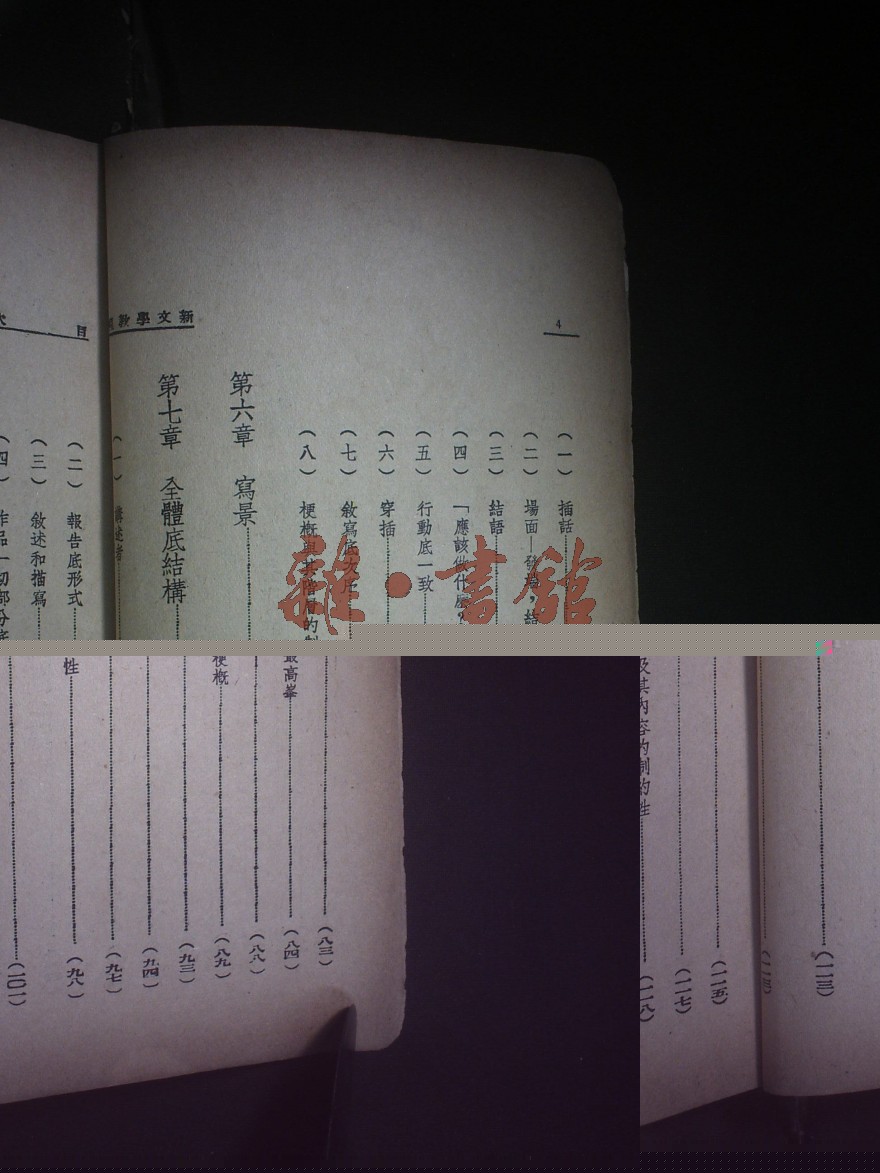 新文學教
4
(一) 插話
(二) 場面—發端,結
(三) 結語
(四) 「應該做什麼?
(五) 行動底一致
(六) 穿插
(七) 敘寫底次序
(八) 梗概與其階層的制
第六章 寫景
第七章 全體底結構
(一) 講述者
目
次
(二) 報告底形式
(三) 敘述和描寫
(四) 作品一切部分底
雜·書館
(八三)
最高峯
(八四)
(八八)
梗概
(八九)
(九三)
(九四)
(九七)
性
(九八)
(一〇一)
(一一三)
(一一三)
(一一五)
(一一七)
及其內容的制約性
(一一八)